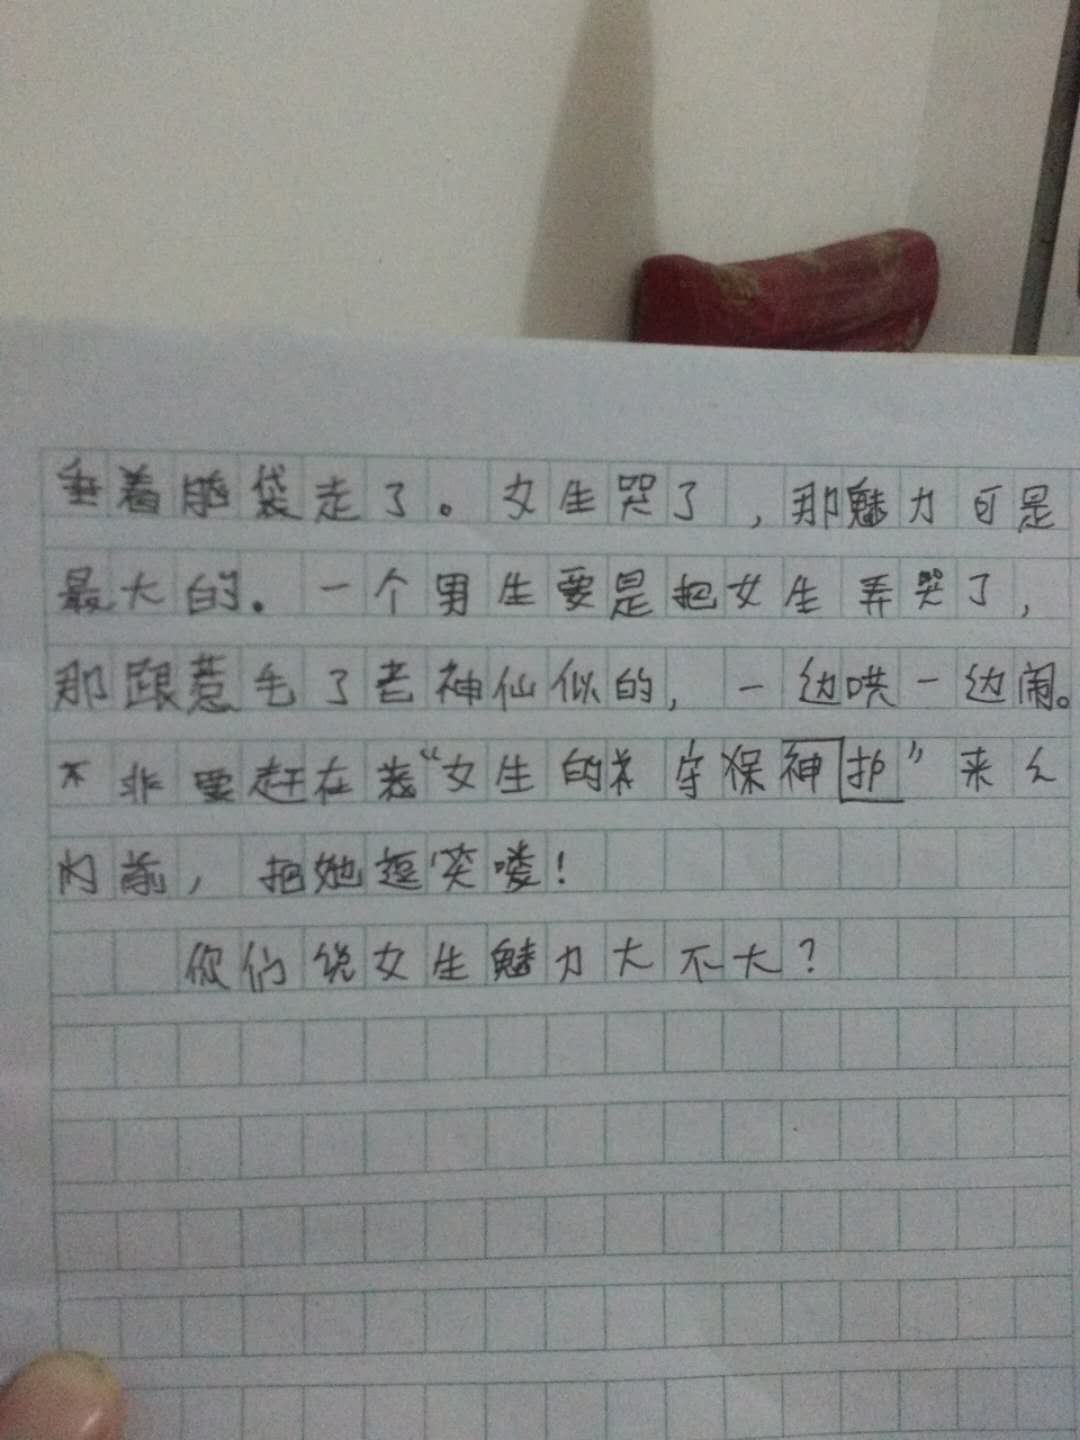 垂着脑袋走了。女生哭了，那魅力可是
最大的。一个男生要是把女生弄哭了，
那跟惹毛了老神仙似的，一边哄一边闹。
不非要赶在 “女生的 守保神护”来
前，把她逗笑喽！
你们说女生魅力大不大？